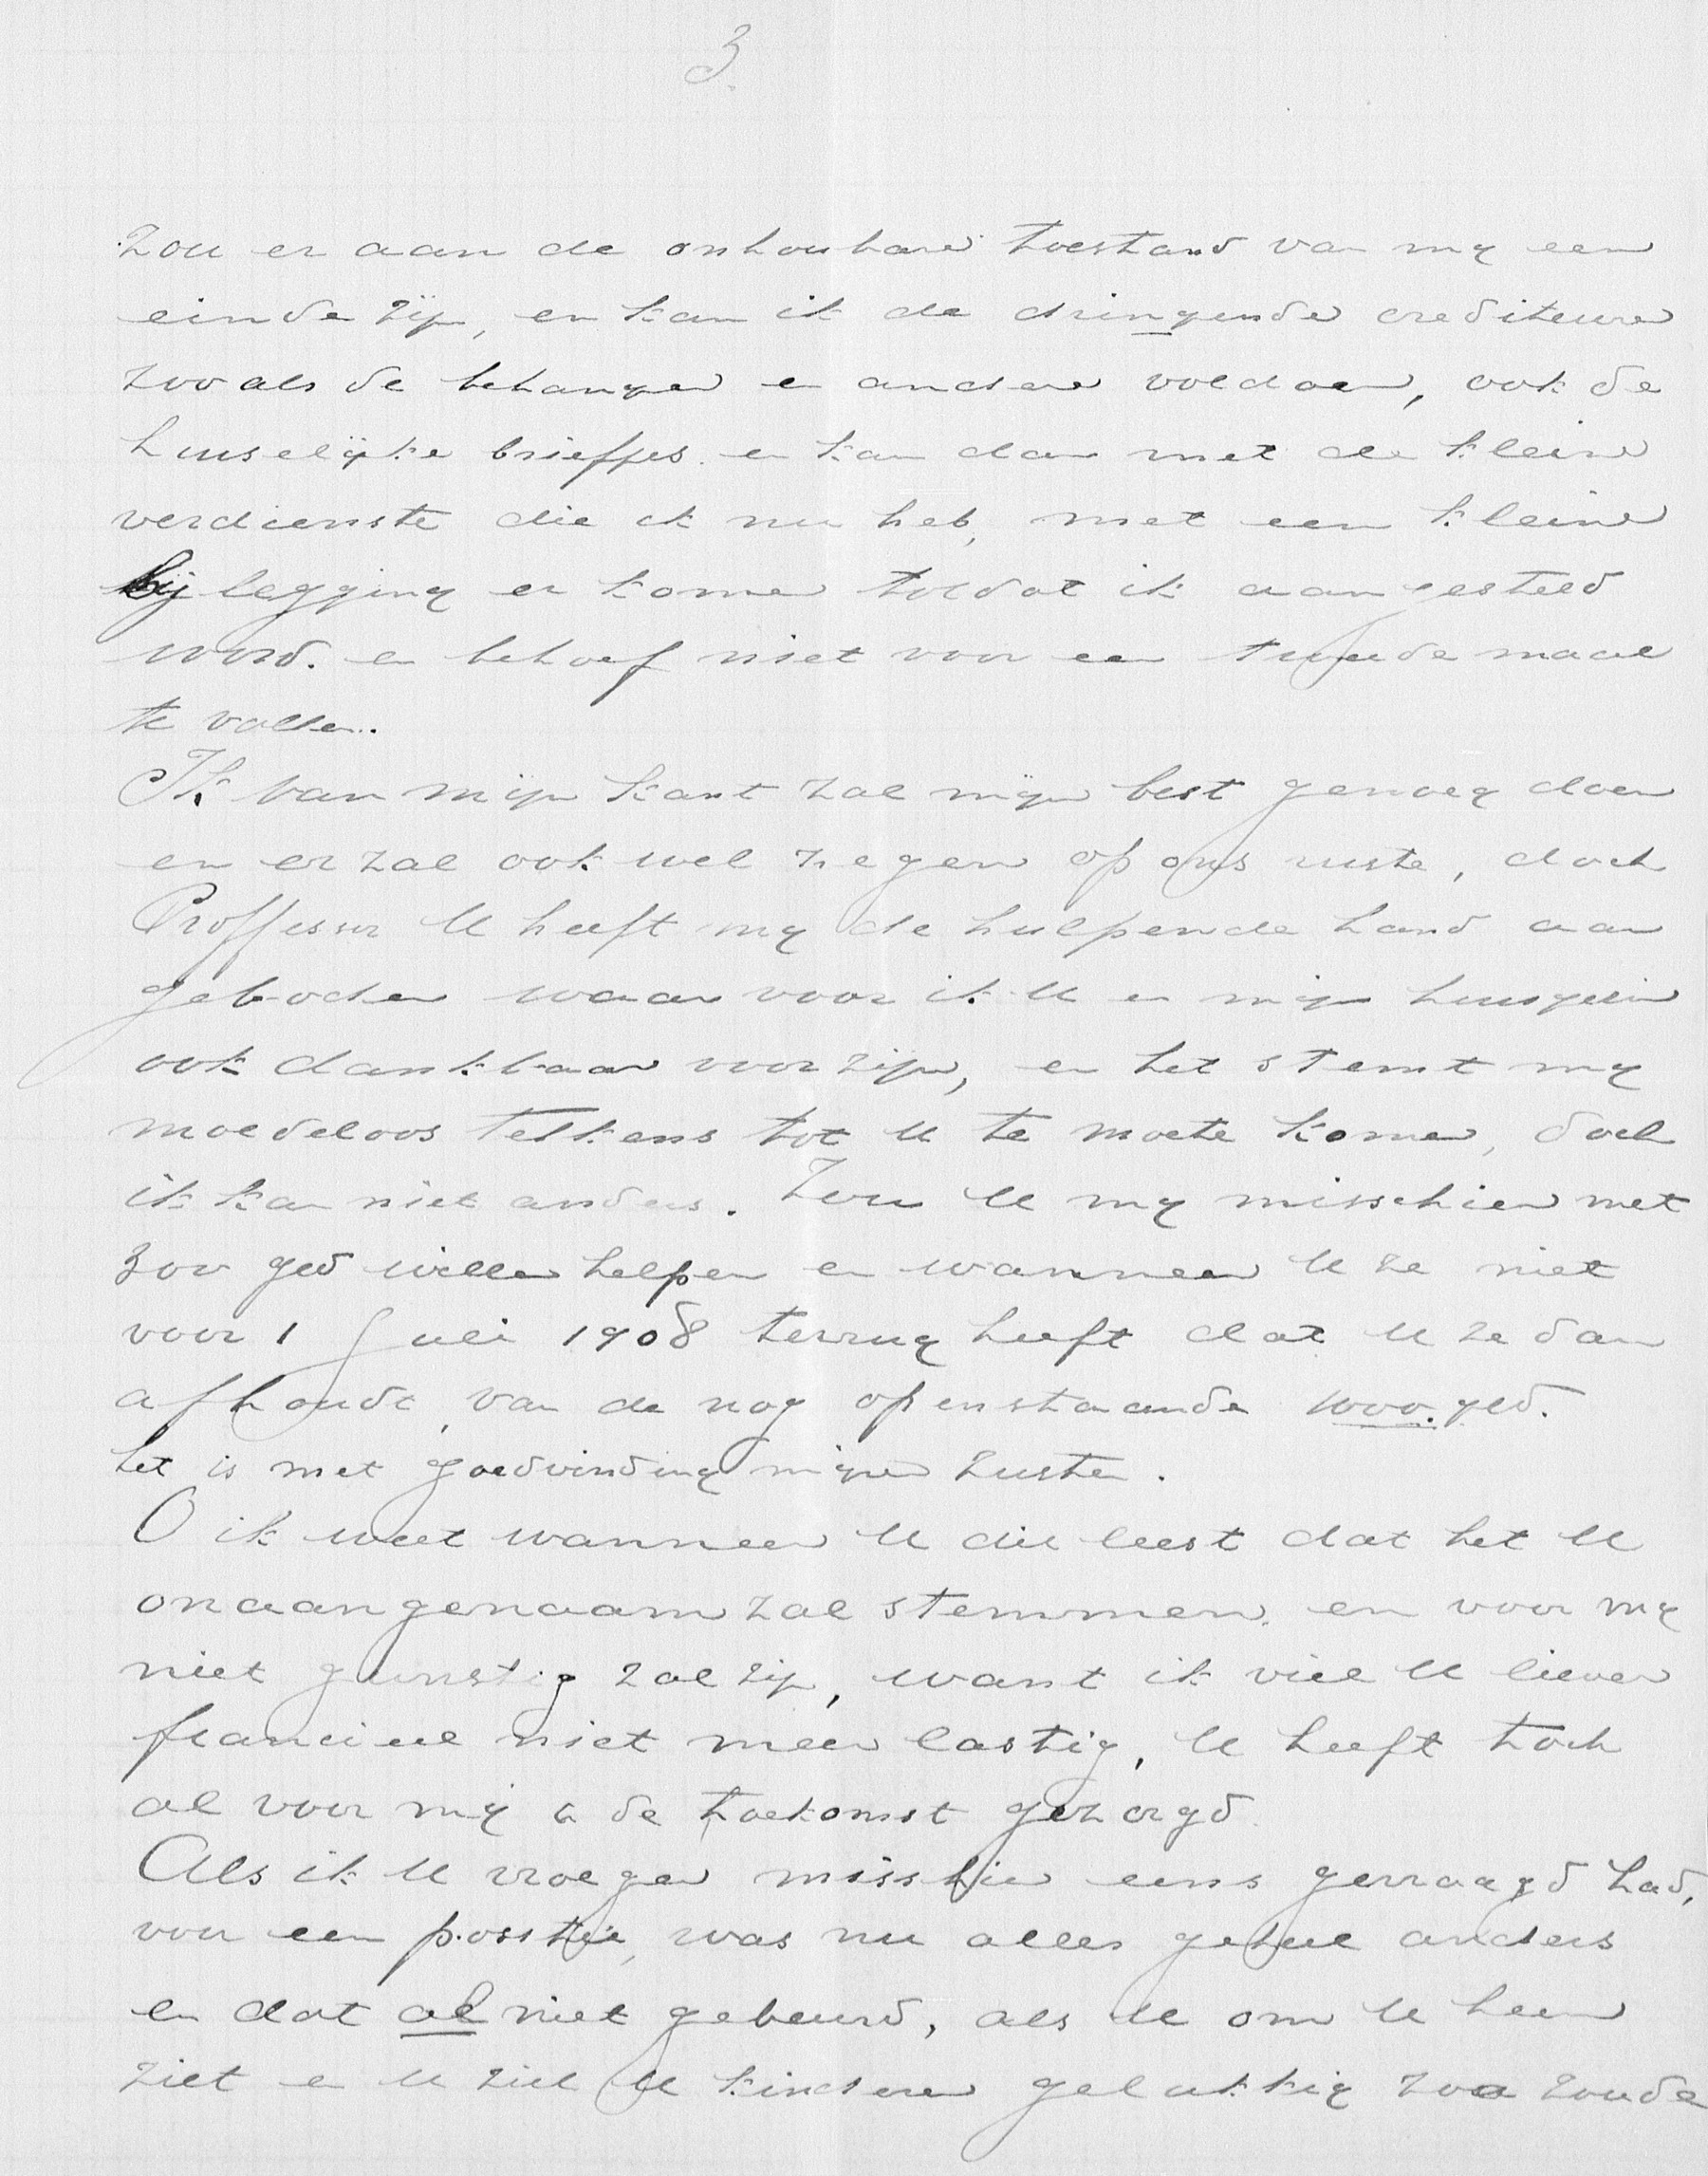 3.
zou er aan de onhoubare toestand van my een
einde zijn, en kan ik de dringende crediteure
zooals de behanger en andere voldoen, ook de
huuselijke briefjes. en kan dan met de kleine
verdienste die ik nu heb, met een kleine
bij legging er kome totdat ik aangesteld
word. en behoef niet voor een tweede maal
te vallen.
Ik van mijn kant zal mijn best genoeg doen
en er zal ook wel zegen op ons ruste, doch
Proffessor U heeft my de hulpende hand aan
geboden waar voor ik U en mijn huisgezin
ook dankbaar voor zijn, en het stemt my
moedeloos telkens tot U te moete kome, doch
ik kan niet anders. Zou U my misschien met
300 gld wille helpen en wanneer U ze niet
voor 1 Juli 1908 terrug heeft dat U ze dan
afhoudt, van de nog openstaande 1000. gld.
het is met goedvinding mijner zuster.
O ik weet wanneer U die leest dat het U
onaangenaam zal stemmen, en voor my
niet gunstig zal zijn, want ik viel U liever
francieel niet meer lastig, U heeft toch
al voor mij in de toekomst gezorgd.
Als ik U vroeger misschie eens gevraagd had,
voor een posstie, was nu alles geheel anders
en dat al niet gebeurd, als U om U heen
ziet en U ziet U kindere gelukkig zoo zoude